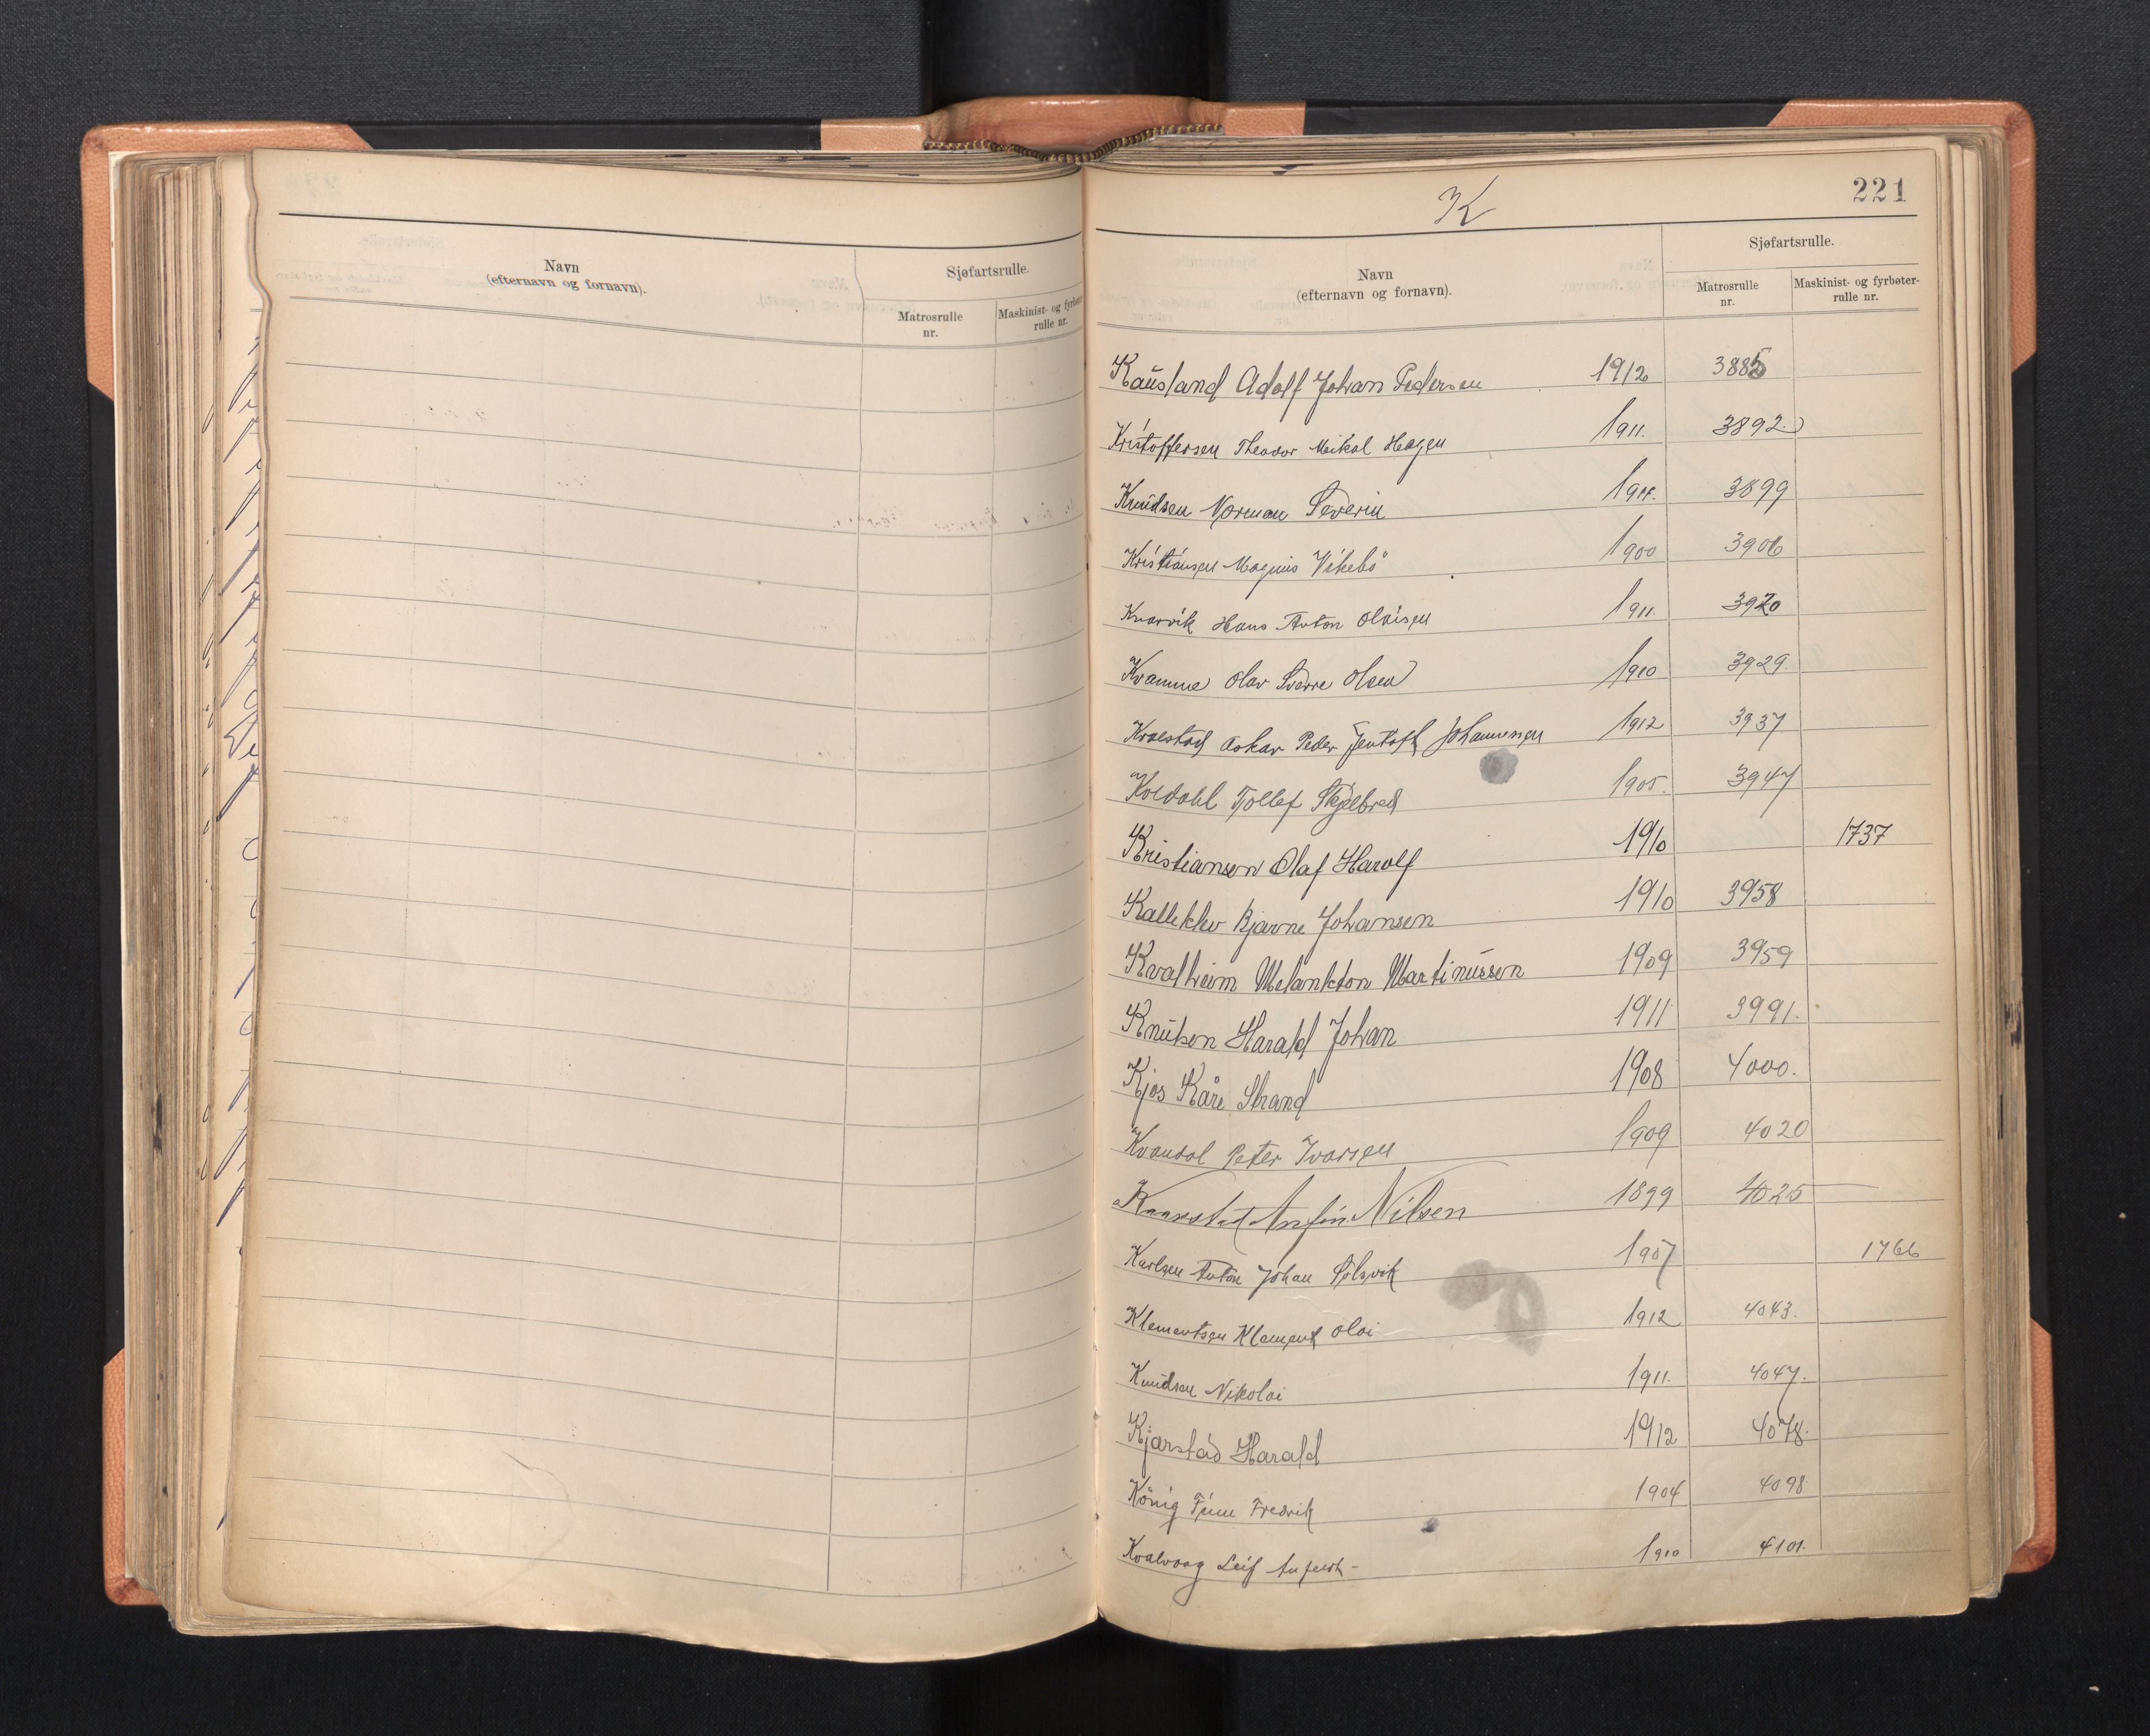 Navn
(efternavn og fornavn).
Sjøfartsrulle.
Matrosrulle
nr.
Maskinist- og fyrbøter-
rulle nr.
K
221
Navn
(efternavn og fornavn).
Sjøfartsrulle.
Matrosrulle
nr.
Maskinist- og fyrbøter-
rulle nr.
Kausland Adolf Johan Pedersen 1912 3885
Kristoffersen Theodor Meikal Hagen 1911. 3892.
Knudsen Norman Severin 3899
Kristiansen Magnus Vikebö 1900 3906
Kvarvik Hans Anton Olaisen 1911. 3920
Kvamme Olav Sverre Olsen 1910 3929.
Oskar Peder Jentoft Johannesen 1912 3937
Koldahl Tjollef Skjelbred 1905. 3947
Kristiansen Olaf Harolf 1910 1737
Kalleklev Bjarne Johansen 1910 3958
Kvalheim Melankton Martinussen 1909 3959
Knutsen Harald Johan 1911 3991.
Kjos Kåre Strand 1908 4000.
Kvandal Peter Ivarsen 1909 4020
Kaarstad Anfin Nilsen 1899 4025
Karlsen Anton Johan Solsvik 1907 1766
Klementsen Klement Oloi 1912 4043.
Knudsen Nikolai 1911. 4047.
Kjarstad Harald 1912 4078.
König Finn Fredrik 1904 4098
Kvalvaag Leif 1910 4101.